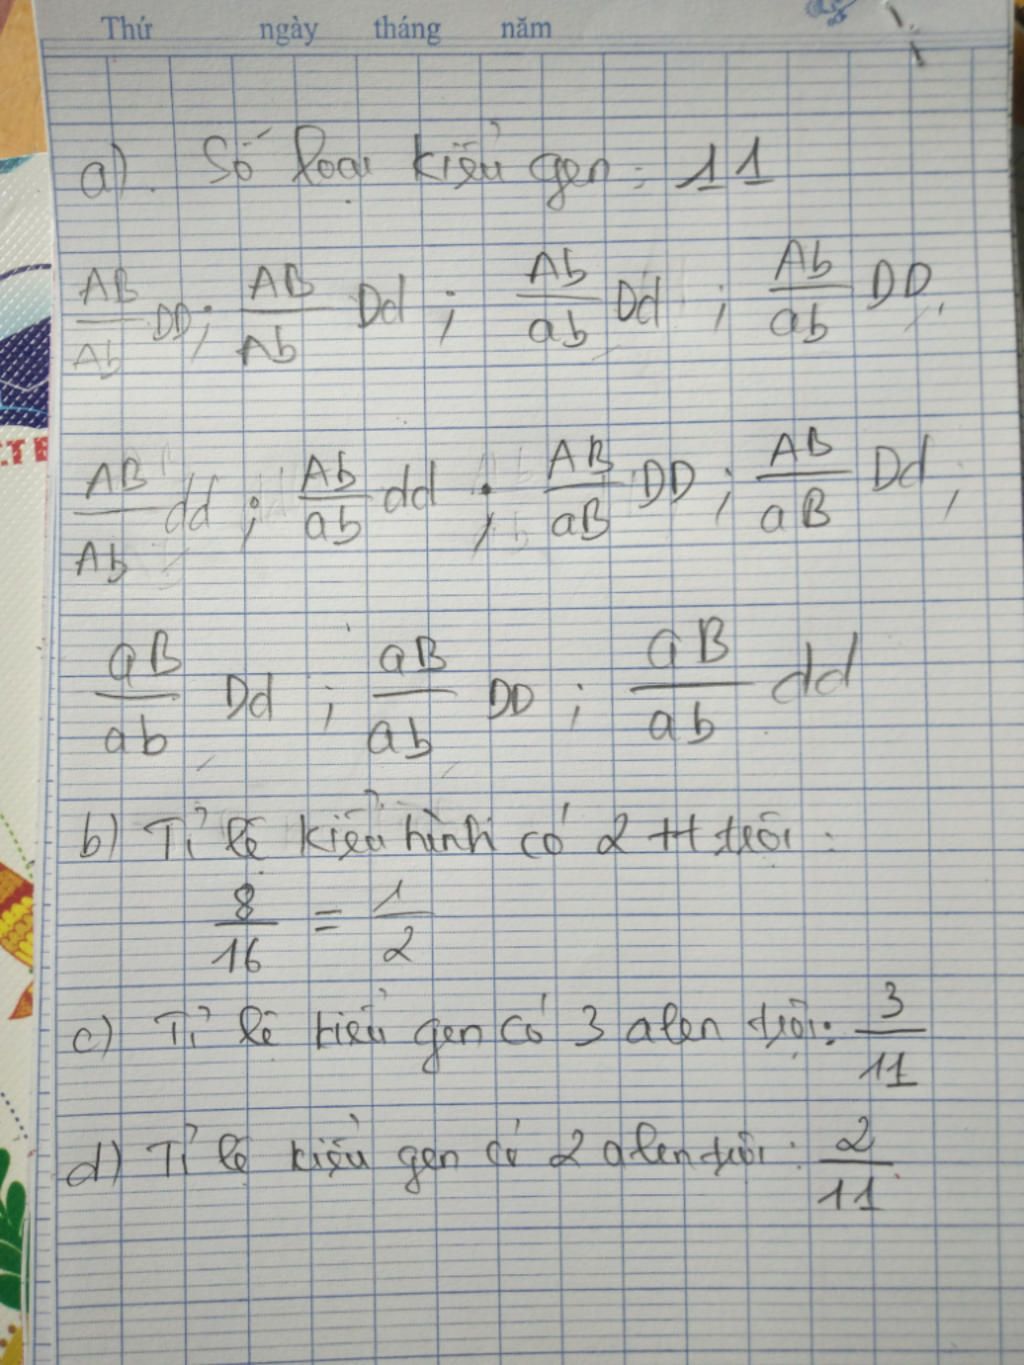 Thứ ngày tháng năm
a). Số loại kiểu gen: 11
AB/Ab DD; AB/Ab Dd; Ab/ab Dd; Ab/ab DD,
AB/Ab dd; Ab/ab dd; AB/aB DD; AB/aB Dd,
aB/ab Dd; aB/ab DD; aB/ab dd
b) Tỉ lệ kiểu hình có 2 tt trội:
8/16 = 1/2
c) Tỉ lệ kiểu gen có 3 alen trội: 3/11
d) Tỉ lệ kiểu gen có 2 alen trội: 2/11